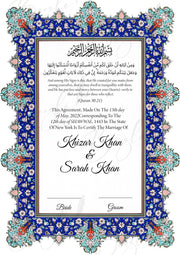 بسم الله الرحمن الرحيم
وَمِنْ آيَاتِهِ أَنْ خَلَقَ لَكُم مِّنْ أَنفُسِكُمْ أَزْوَاجًا لِّتَسْكُنُوا إِلَيْهَا
وَجَعَلَ بَيْنَكُم مَّوَدَّةً وَرَحْمَةً إِنَّ فِي ذَٰلِكَ لَآيَاتٍ لِّقَوْمٍ يَتَفَكَّرُونَ
And among His Signs is this, that He created for you mates from
among yourselves, that ye may dwell in tranquillity with them,
and He has put love and mercy between your (hearts): verily in
that are Signs for those who reflect.
(Quran 30:21)
This Agreement, Made On The 13th day
of May, 2022Corresponding To The
12th day of SHAWWAL, 1443 In The State
Of New York Is To Certify The Marriage Of
Khizar Khan
&
Sarah Khan
Bride
Groom